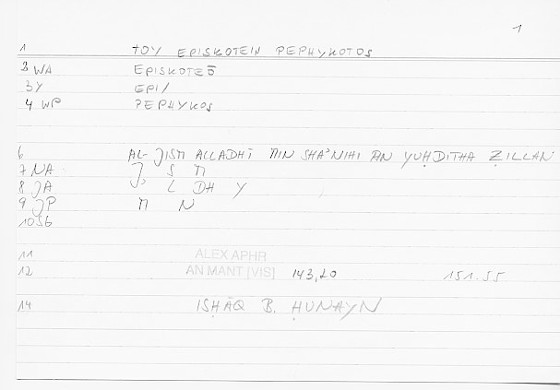 1
1 TOY EPISKOTEIN PEPHYKOTOS
2 WA EPISKOTEŌ
3 Y EPI/
4 WP PEPHYKOS
6 AL-JISM ALLADHĪ MIN SHAʾNIHI AN YUḤDITHA ẒILLAN
7 NA J S M
8 JA L DH Y
9 JP M N
10 SG
11 ALEX APHR
12 AN MANT [VIS] 143,20 151.55
14 ISḤĀQ B. ḤUNAYN